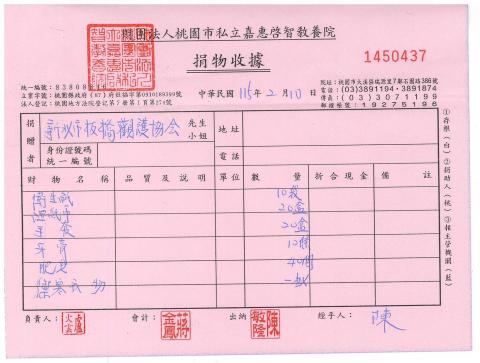 財團法人桃園市私立嘉惠啓智教養院
捐物收據
1450437
統一編號：
立案字號：桃園縣政府(87)府社福字第0910189399號
法人登記：桃園地方法院登記第7冊第1頁第274號
中華民國 115 年 2 月 10 日
院址：桃園市大溪區瑞源里7鄰石園路386號
電話：(03)3891194・3891874
傳真：(03)3071199
郵撥帳號：19275196
捐贈者 新北市板橋觀護協會 先生小姐
身份證號碼
統一編號
地址
電話
財物名稱 品質及說明 單位 數量 折合現金 備註
衛生紙 10袋
濕紙巾 20盒
手套 20盒
牙膏 10條
肥皂
禦寒衣物 一批
①存根(白)②捐助人(桃)③報主管機關(藍)
負責人： 會計： 蔣金鳳 出納 陳敏隆 經手人： 陳